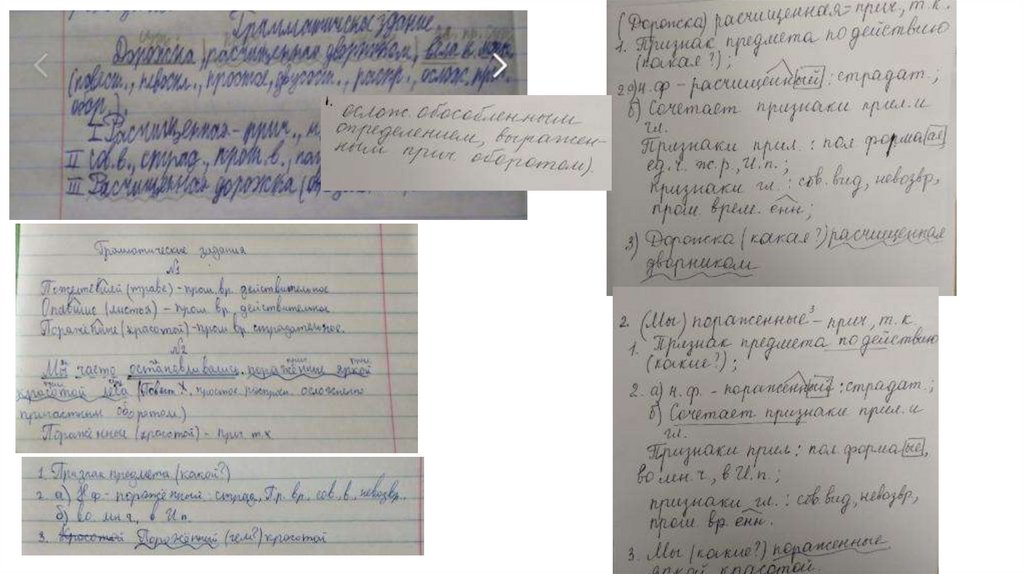 Грамматическое задание.
Дорожка, расчищенная дворником, вела к
(повеств., невоскл., простое, двусост., распр., ослож. прич.
обор.).
I Расчищенная - прич.,
II сов.в., страд., прош.в.,
III Расчищенная дорожка
ослож. обособленным
определением, выражен-
ным прич. оборотом).
Грамматические задания
№1
Пожелтевшей (траве) - прош. вр. действительное
Опавшие (листья) - прош. вр. действительное
Поражённые (красотой) - прош. вр. страдательное.
№2
Мы часто останавливались, поражённые яркой
красотой леса (Повест., простое, распростр. осложнено
причастным оборотом)
Поражённые (красотой) - прич. т.к
1. Признак предмета (какой?)
2. а) Н.ф - поражённый - страд., Пр. вр. сов. в. невозвр.
б) во мн.ч, в И.п.
3. красотой Поражённый (чем?) красотой
(Дорожка) расчищенная = прич., т.к.
1. Признак предмета по действию
(какая?);
2 а) н.ф - расчищенный: страдат.;
б) Сочетает признаки прил. и
гл.
Признаки прил.: пол форма ая,
ед.ч. ж.р., И.п.;
признаки гл.: сов. вид, невозвр,
прош. врем. енн;
3) Дорожка (какая?) расчищенная
дворником
2. (Мы) пораженные³ - прич, т.к.
1. Признак предмета по действию
(какие?);
2. а) н.ф. - пораженный: страдат.;
б) Сочетает признаки прил. и
гл.
Признаки прил: пол форма ые,
во мн.ч., в И.п.;
признаки гл.: сов. вид, невозвр,
прош. вр. енн.
3. Мы (какие?) пораженные
яркой красотой.